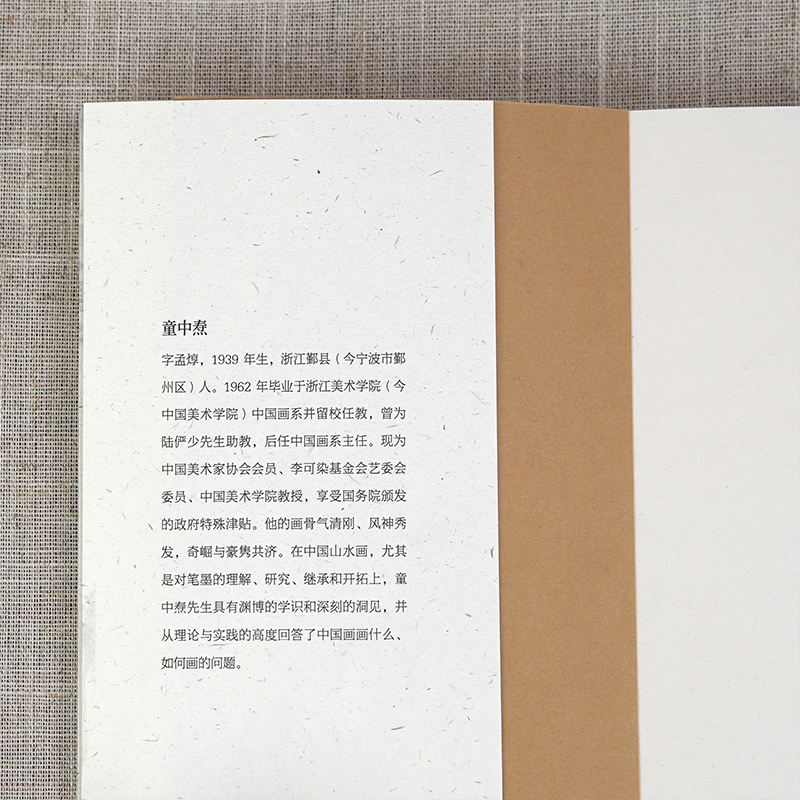 童中焘
字孟焞，1939 年生，浙江鄞县（今宁波市鄞
州区）人。1962 年毕业于浙江美术学院（今
中国美术学院）中国画系并留校任教，曾为
陆俨少先生助教，后任中国画系主任。现为
中国美术家协会会员、李可染基金会艺委会
委员、中国美术学院教授，享受国务院颁发
的政府特殊津贴。他的画骨气清刚、风神秀
发，奇崛与豪隽共济。在中国山水画，尤其
是对笔墨的理解、研究、继承和开拓上，童
中焘先生具有渊博的学识和深刻的洞见，并
从理论与实践的高度回答了中国画画什么、
如何画的问题。